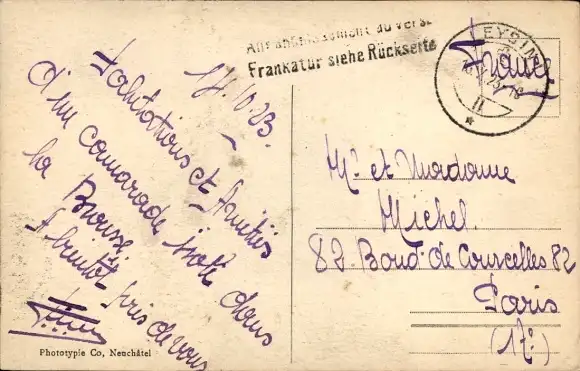 17.10.23.
Salutations et Amitiés
d'un camarade isolé dans
la Brousse.
A bientôt près de vous
Affranchissement au verso
Frankatur siehe Rückseite
LEYSIN
France
Mr et Madame
Michel.
82. Boud. de Courcelles 82
Paris
(17e)
Phototypie Co, Neuchâtel